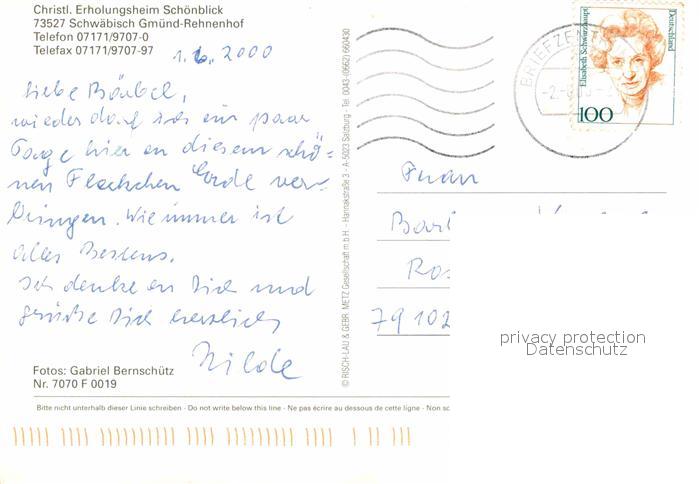 Christl. Erholungsheim Schönblick
73527 Schwäbisch Gmünd-Rehnenhof
Telefon 07171/9707-0
Telefax 07171/9707-97
1.6.2000
Liebe Bärbel,
wieder darf ich ein paar
Tage hier an diesem schö-
nen Fleckchen Erde ver-
bringen. Wie immer ist
alles Bestens.
Ich denke an Dich und
grüße Dich herzlich
Hilde
Fotos: Gabriel Bernschütz
Nr. 7070 F 0019
© RISCH-LAU & GEBR. METZ Gesellschaft m.b.H. – Hannakstraße 3 - A-5023 Salzburg - Tel. 0043-(0)662) 660430
BRIEFZENT
Elisabeth Schwarzhaupt
Deutschland
100
Frau
79102
privacy protection
Datenschutz
Bitte nicht unterhalb dieser Linie schreiben - Do not write below this line - Ne pas écrire au dessous de cette ligne - Non sc